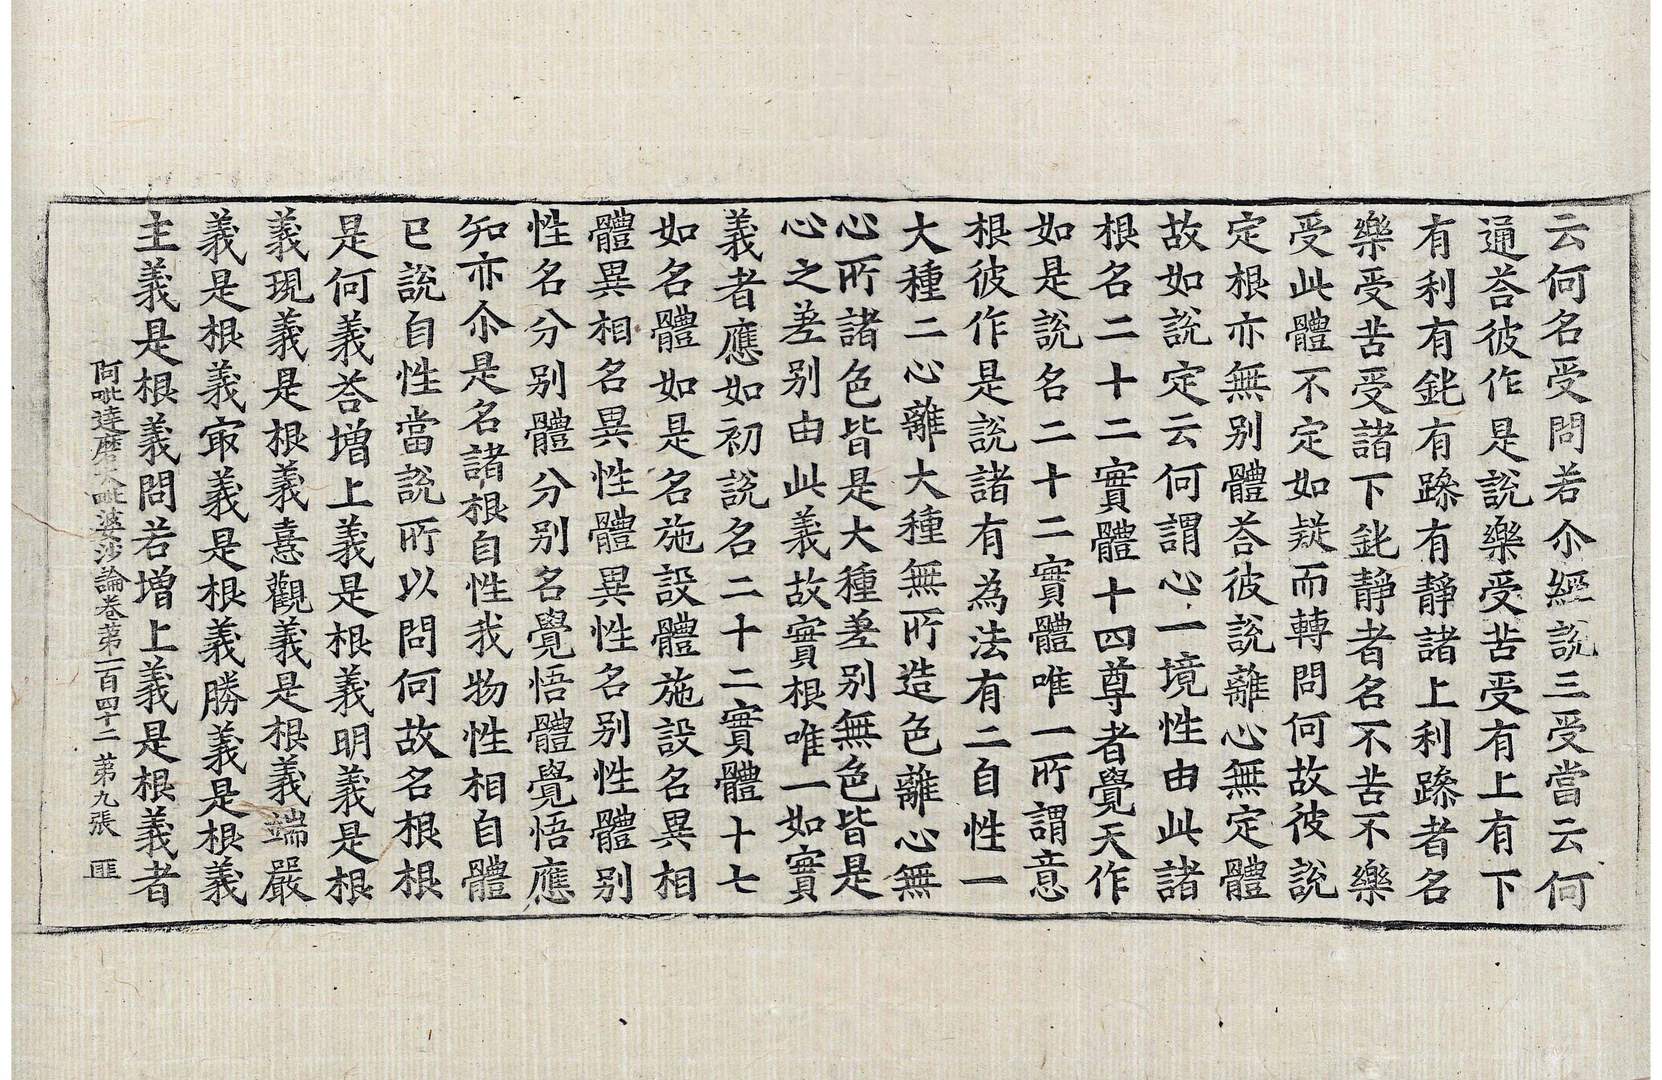 云何名受問若尒經說三受當云何
通荅彼作是說樂受苦受有上有下
有利有鈍有躁有靜諸上利躁者名
樂受苦受諸下鈍靜者名不苦不樂
受此體不定如疑而轉問何故彼說
定根亦無別體荅彼說離心無定體
故如說定云何謂心一境性由此諸
根名二十二實體十四尊者覺天作
如是說名二十二實體唯一所謂意
根彼作是說諸有為法有二自性一
大種二心離大種無所造色離心無
心所諸色皆是大種差別無色皆是
心之差別由此義故實根唯一如實
義者應如初說名二十二實體十七
如名體如是名施設體施設名異相
體異相名異性體異性名別性體別
性名分別體分別名覺悟體覺悟應
知亦尒是名諸根自性我物性相自體
已說自性當說所以問何故名根根
是何義荅增上義是根義明義是根
義現義是根義憙觀義是根義端嚴
義是根義㝡義是根義勝義是根義
主義是根義問若增上義是根義者
阿毗達磨大毗婆沙論卷第一百四十二 第九張 匪